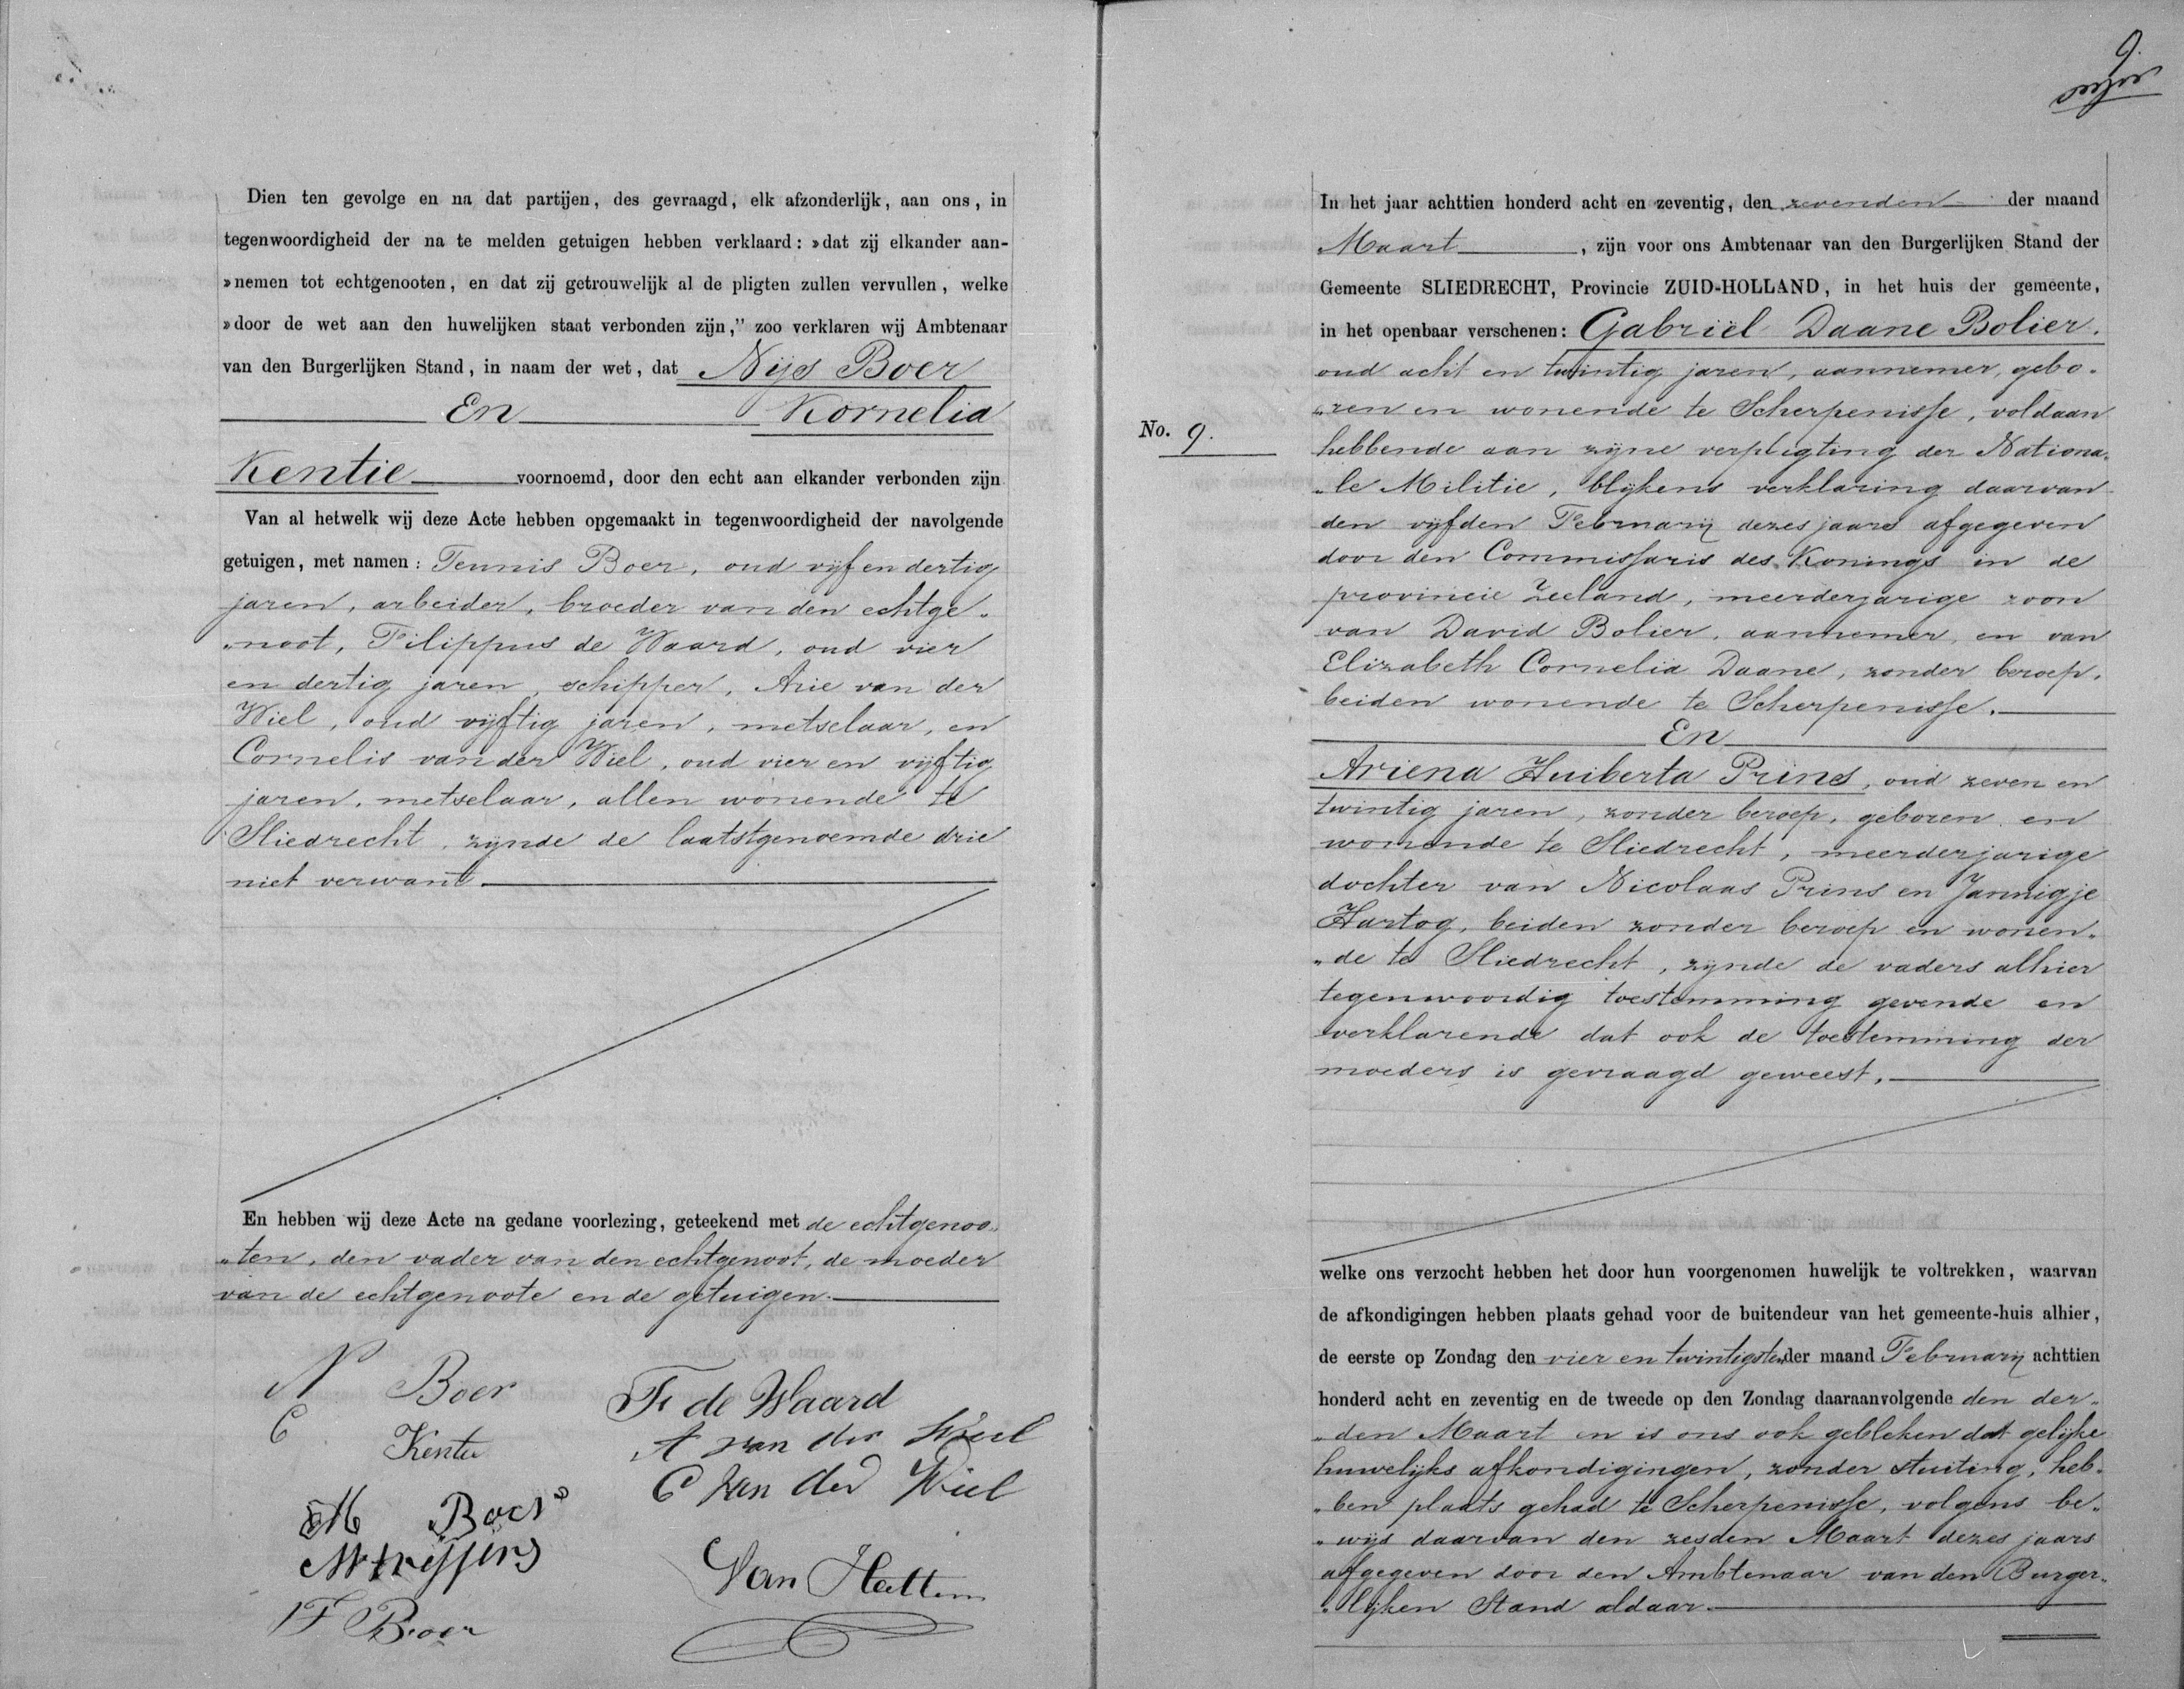 Dien ten gevolge en na dat partijen, des gevraagd, elk afzonderlijk, aan ons, in
tegenwoordigheid der na te melden getuigen hebben verklaard: »dat zij elkander aan-
»nemen tot echtgenooten, en dat zij getrouwelijk al de pligten zullen vervullen, welke
»door de wet aan den huwelijken staat verbonden zijn," zoo verklaren wij Ambtenaar
van den Burgerlijken Stand, in naam der wet, dat Nijs Boer
En Kornelia
Kentie voornoemd, door den echt aan elkander verbonden zijn
Van al hetwelk wij deze Acte hebben opgemaakt in tegenwoordigheid der navolgende
getuigen, met namen: Teunis Boer, oud vijf en dertig
jaren, arbeider, broeder van den echtge„
„noot, Filippus de Waard, oud vier
en dertig jaren, schipper, Arie van der
Wiel, oud vijftig jaren, metselaar, en
Cornelis van der Wiel, oud vier en vijftig
jaren, metselaar, allen wonende te
Sliedrecht, zijnde de laatstgenoemde drie
niet verwant.
En hebben wij deze Acte na gedane voorlezing, geteekend met de echtgenoo„
„ten, den vader van den echtgenoot, de moeder
van de echtgenoote en de getuigen.
N Boer
F de Waard
C Kentie
A van der Wiel
M Boer
C van der Wiel
T Boer
Van Hattem
9.
In het jaar achttien honderd acht en zeventig, den zevenden der maand
Maart, zijn voor ons Ambtenaar van den Burgerlijken Stand der
Gemeente SLIEDRECHT, Provincie ZUID-HOLLAND, in het huis der gemeente,
in het openbaar verschenen: Gabriël Daane Bolier.
oud acht en twintig jaren, aannemer, gebo„
„ren en wonende te Scherpenisse, voldaan
No. 9.
hebbende aan zijne verpligting der Nationa„
„le Militie, blijkens verklaring daarvan
den vijfden February dezes jaars afgegeven
door den Commissaris des Konings in de
provincie Zeeland, meerderjarige zoon
van David Bolier, aannemer, en van
Elizabeth Cornelia Daane, zonder beroep,
beiden wonende te Scherpenisse.
En
Ariena Huiberta Prins, oud zeven en
twintig jaren, zonder beroep, geboren en
wonende te Sliedrecht, meerderjarige
dochter van Nicolaas Prins en Jannigje
Hartog, beiden zonder beroep en wonen„
„de te Sliedrecht, zijnde de vaders alhier
tegenwoordig toestemming gevende en
verklarende dat ook de toestemming der
moeders is gevraagd geweest.
welke ons verzocht hebben het door hun voorgenomen huwelijk te voltrekken, waarvan
de afkondigingen hebben plaats gehad voor de buitendeur van het gemeente-huis alhier,
de eerste op Zondag den vier en twintigsten der maand February achttien
honderd acht en zeventig en de tweede op den Zondag daaraanvolgende den der„
„den Maart en is ons ook gebleken dat gelijke
huwelijks afkondigingen, zonder stuiting, heb„
„ben plaats gehad te Scherpenisse, volgens be„
„wijs daarvan den zesden Maart dezes jaars
afgegeven door den Ambtenaar van den Burger„
„lijken Stand aldaar.